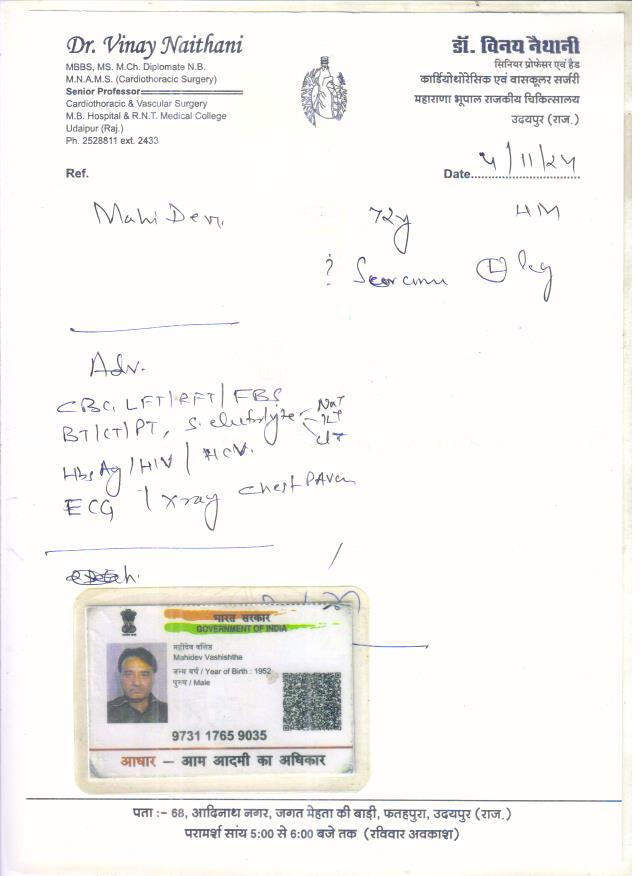 Dr. Vinay Naithani
MBBS, MS. M.Ch. Diplomate N.B.
M.N.A.M.S. (Cardiothoracic Surgery)
Senior Professor
Cardiothoracic & Vascular Surgery
M.B. Hospital & R.N.T. Medical College
Udaipur (Raj.)
Ph. 2528811 ext. 2433
डॉ. विनय नैथानी
सिनियर प्रोफेसर एवं हैड
कार्डियोथोरेसिक एवं वासकूलर सर्जरी
महाराणा भूपाल राजकीय चिकित्सालय
उदयपुर (राज.)
Ref.
Date
Mahi Dev. 72y
? L leg
Adv.
CBC, LFT/RFT/FBS
BT/CT/PT, S. elutrolyte Na+
HbsAg/HIV/HCV.
ECG / Xray chest PAview
भारत सरकार
GOVERNMENT OF INDIA
महीदेव वशिष्ठ
Mahidev Vashishtha
जन्म वर्ष / Year of Birth : 1952
पुरुष / Male
9731 1765 9035
आधार – आम आदमी का अधिकार
पता :– 68, आदिनाथ नगर, जगत मेहता की बाड़ी, फतहपुरा, उदयपुर (राज.)
परामर्श सांय 5:00 से 6:00 बजे तक (रविवार अवकाश)